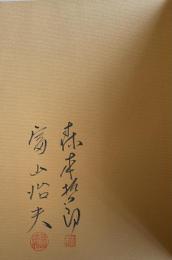 森本哲郎
富山治夫